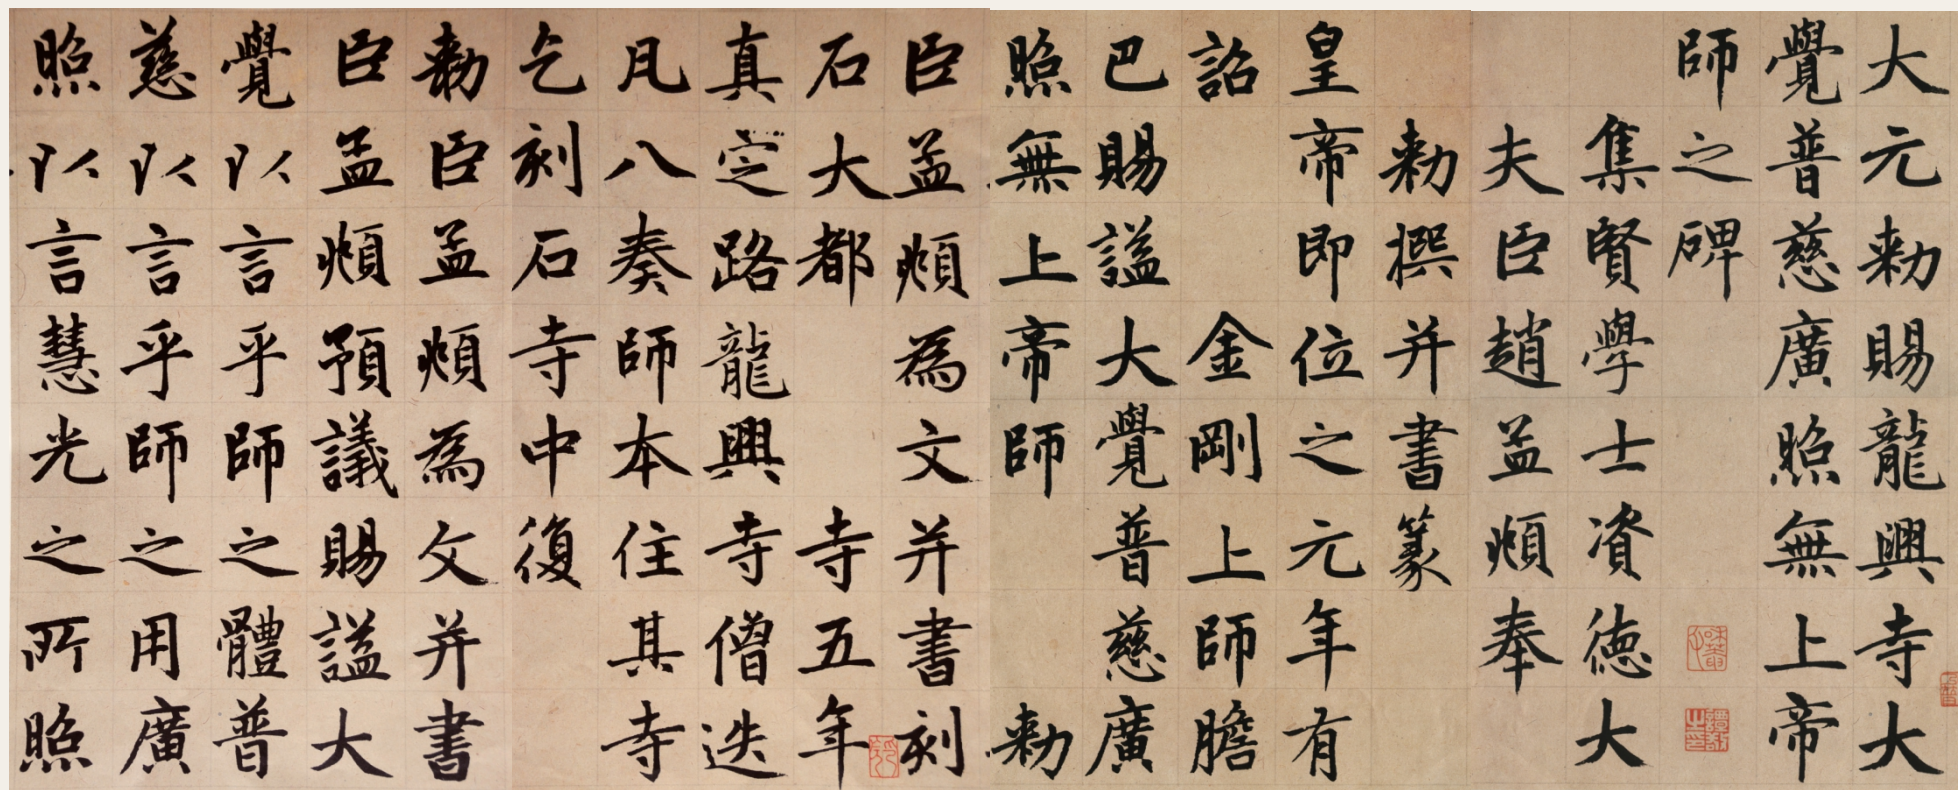 大元勑賜龍興寺大
覺普慈廣照無上帝
師之碑
集賢學士資德大
夫臣趙孟頫奉
勑撰并書篆
皇帝即位之元年有
詔 金剛上師膽
巴賜謚大覺普慈廣
照無上帝師 勑
臣孟頫為文并書刻
石大都 寺五年
真定路龍興寺僧迭
凡八奏師本住其寺
乞刻石寺中復
勑臣孟頫為文并書
臣孟頫預議賜謚大
覺以言乎師之體普
慈以言乎師之用廣
照以言慧光之所照